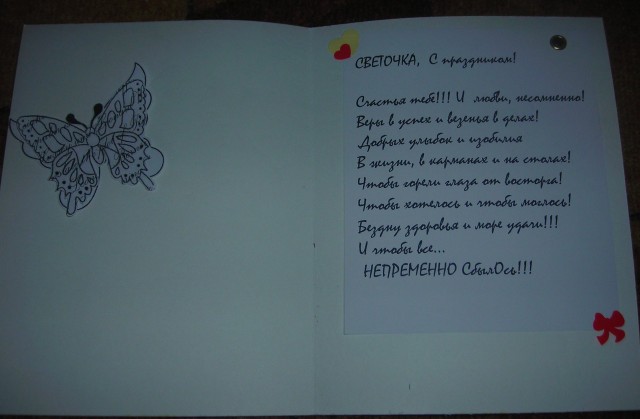 СВЕТОЧКА, С праздником!
Счастья тебе!!! И любви, несомненно!
Веры в успех и везенья в делах!
Добрых улыбок и изобилия
В жизни, в карманах и на столах!
Чтобы горели глаза от восторга!
Чтобы хотелось и чтобы моглось!
Бездну здоровья и море удачи!!!
И чтобы все...
НЕПРЕМЕННО СбылОсь!!!